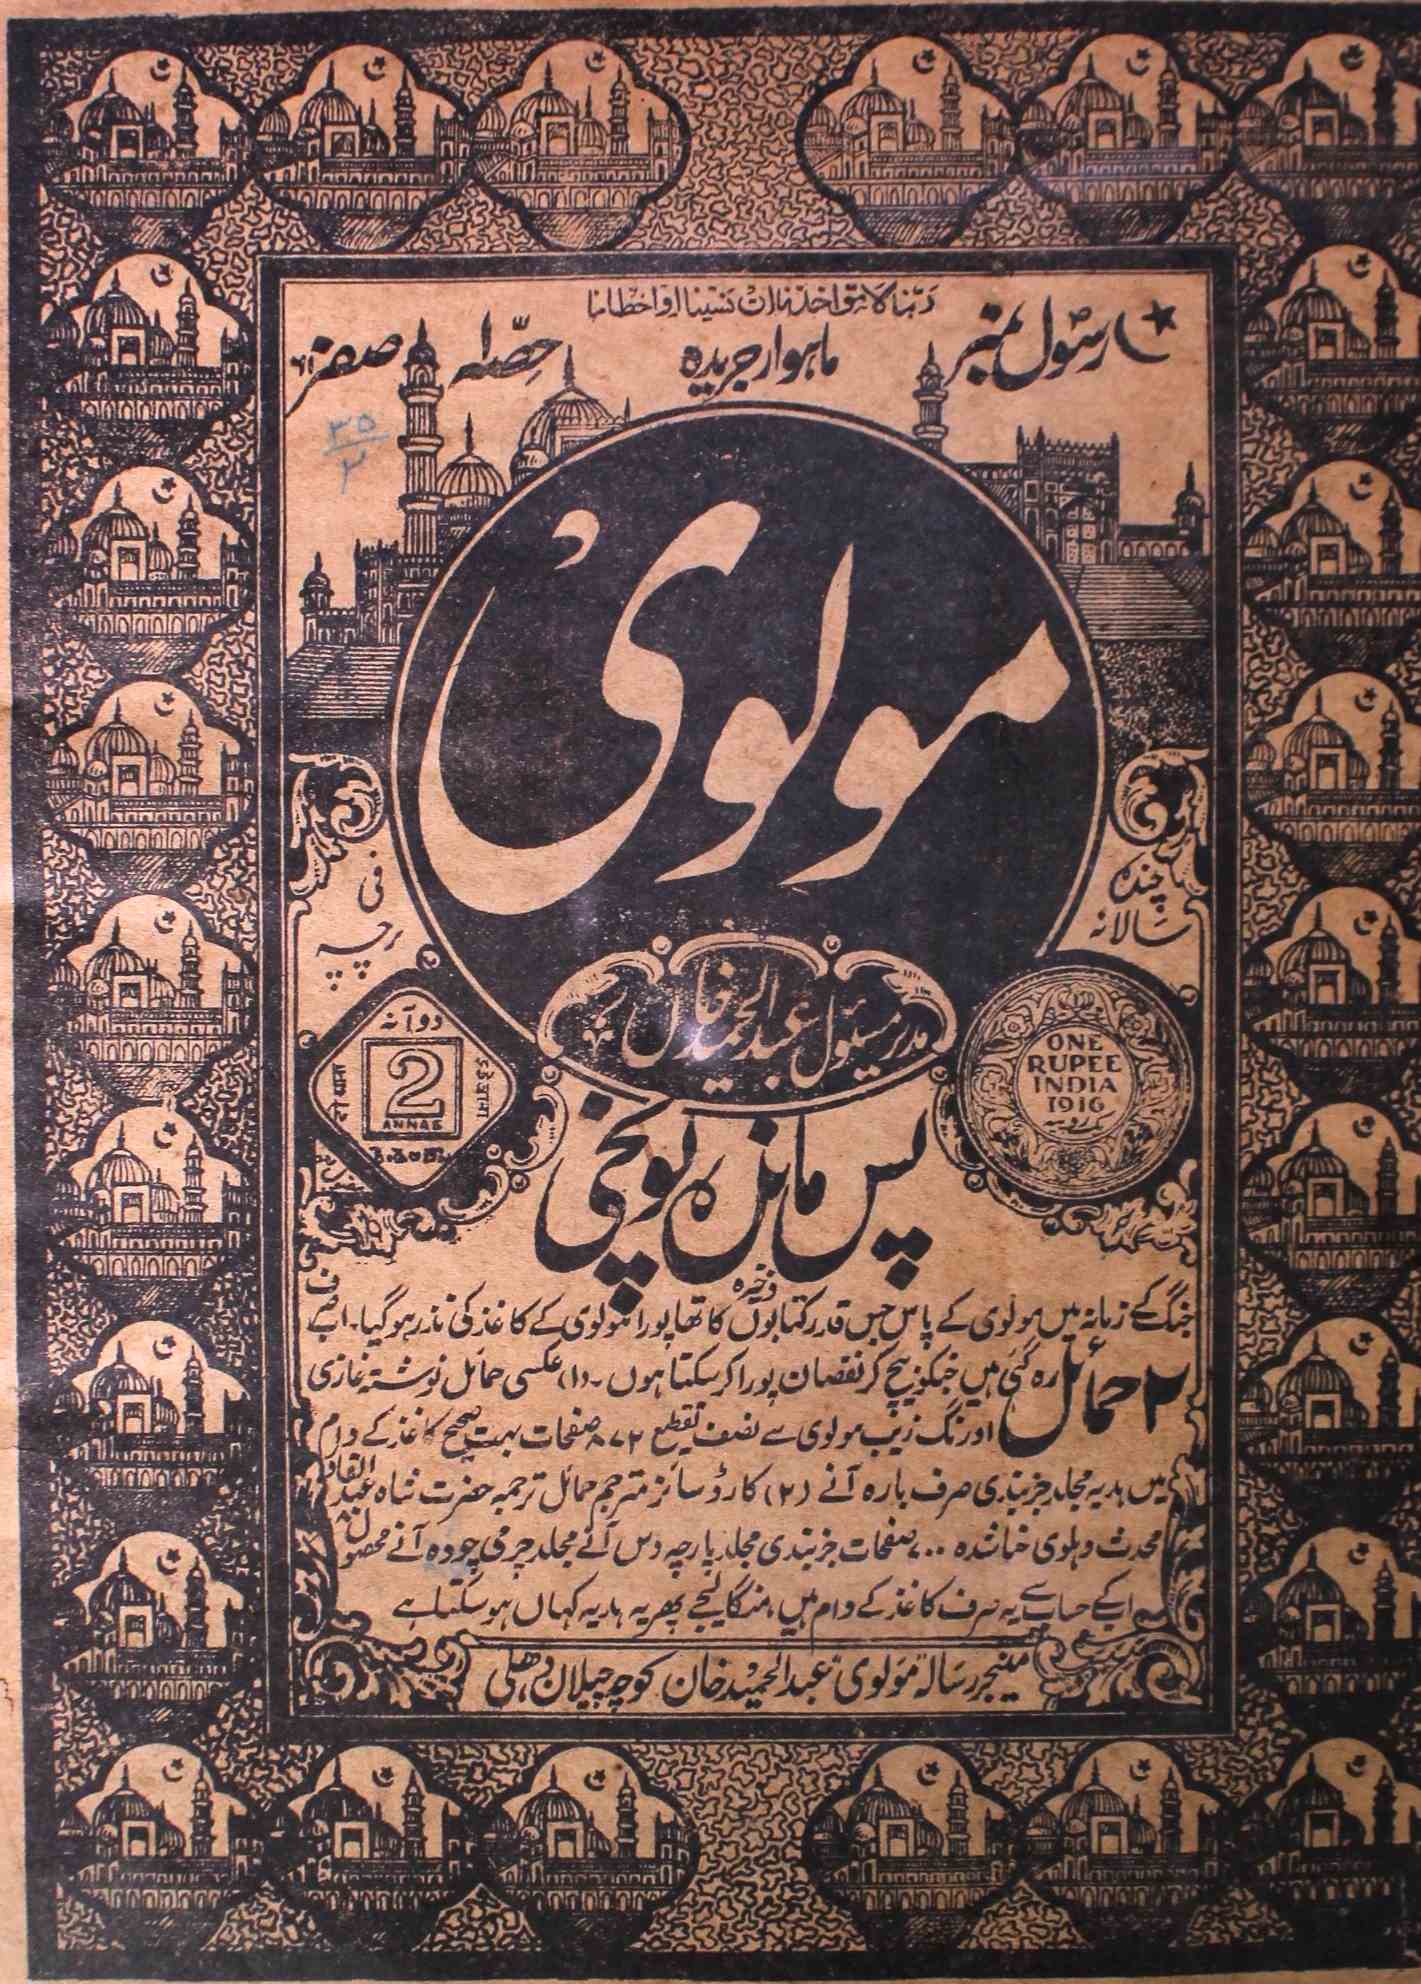 ربنا لا تؤاخذنا ان نسینا او اخطانا
رسول نمبر
ماہوار جریدہ
حصہ
صفر
۳۵
۲
مولوی
چندہ
سالانہ
فی
پرچہ
مدیر مسئول عبدالحمید خاں
دو آنہ
2
ANNAS
ONE
RUPEE
INDIA
1916
یک روپیہ
پس ماندہ پونجی
جنگ کے زمانہ میں مولوی کے پاس جس قدر کتابوں کا ذخیرہ تھا پورا مولوی کے کاغذ کی نذر ہو گیا۔ اب صرف
۲ حمائل رہ گئی ہیں جنکو بیچ کر نقصان پورا کر سکتا ہوں۔ (۱) عکسی حمائل نوشتہ غازی
اورنگ زیب مولوی سے نصف تقطیع ۸۷۲ صفحات بہت صحیح کاغذ کے دام
میں ہدیہ مجلد جزبندی صرف بارہ آنے (۲) کارڈ سائز مترجم حمائل ترجمہ حضرت شاہ عبدالقادر
محدث دہلوی صفحات جزبندی مجلد پارچہ دس آنے مجلد چرمی چودہ آنے محصول
اب کے حساب سے یہ صرف کاغذ کے دام ہیں، منگا لیجے پھر یہ ہدیہ کہاں ہو سکتا ہے
مینیجر رسالہ "مولوی" عبدالحمید خان کوچہ چیلان دھلی